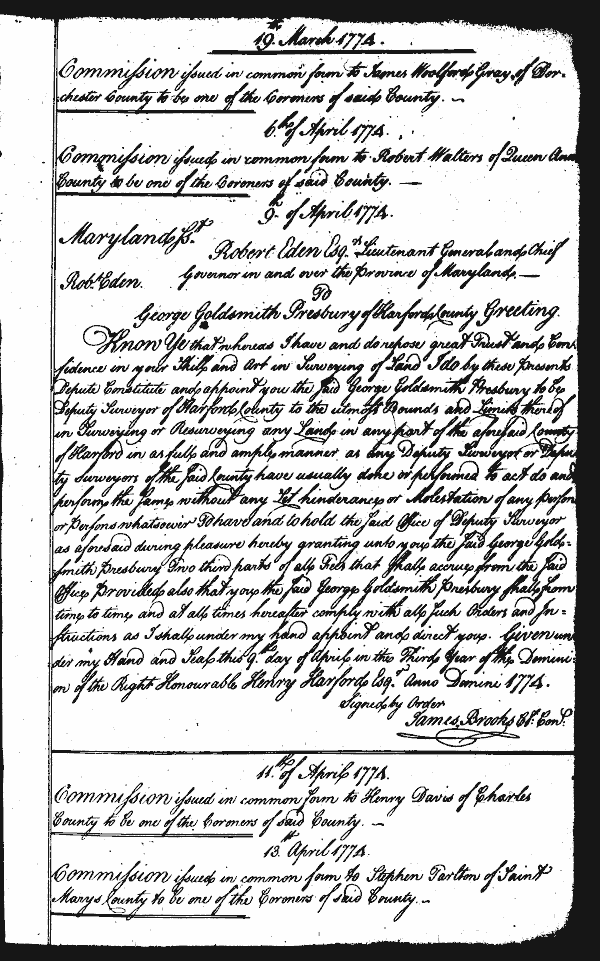 19.th March 1774.
Commission issued in common form to James Woolford Gray of Dor-
chester County to be one of the Coroners of said County. ~
6.th of April 1774.
Commission issued in common form to Robert Walters of Queen Ann
County to be one of the Coroners of said County. —
9.th of April 1774.
Maryland Ss.t
Robert Eden Esq.r Lieutenant General and Chief
Rob.t Eden. Governor in and over the Province of Maryland. —
To
George Goldsmith Presbury of Harford County Greeting.
Know Ye that whereas I have and do repose great Trust and Con-
fidence in your Skill and Art in Surveying of Land I do by these presents
Depute Constitute and appoint you the said George Goldsmith Presbury to be
Deputy Surveyor of Harford County to the utmost Bounds and Limits thereof
in Surveying or Resurveying any Land in any part of the aforesaid County
of Harford in as full and ample manner as any Deputy Surveyor or Depu-
ty Surveyors of the said County have usually done or performed to act do and
perform the same without any Let hinderance or Molestation of any person
or persons whatsoever To have and to hold the said Office of Deputy Surveyor
as aforesaid during pleasure hereby granting unto you the said George Gold-
smith Presbury Two third parts of all Fees that shall accrue from the said
Office Provided also that you the said George Goldsmith Presbury shall from
time to time and at all times hereafter comply with all such Orders and In-
structions as I shall under my hand appoint and direct you. Given un
der my Hand and Seal this 9.th day of April in the Third Year of the Domini-
on of the Right Honourable Henry Harford Esq.r Anno Domini 1774.
Signed by Order
James Brooks Cl. Con.l
11.th of April 1774.
Commission issued in common form to Henry Davis of Charles
County to be one of the Coroners of said County. ~
13.th April 1774.
Commission issued in common form to Stephen Tarlton of Saint
Marys County to be one of the Coroners of said County. ~